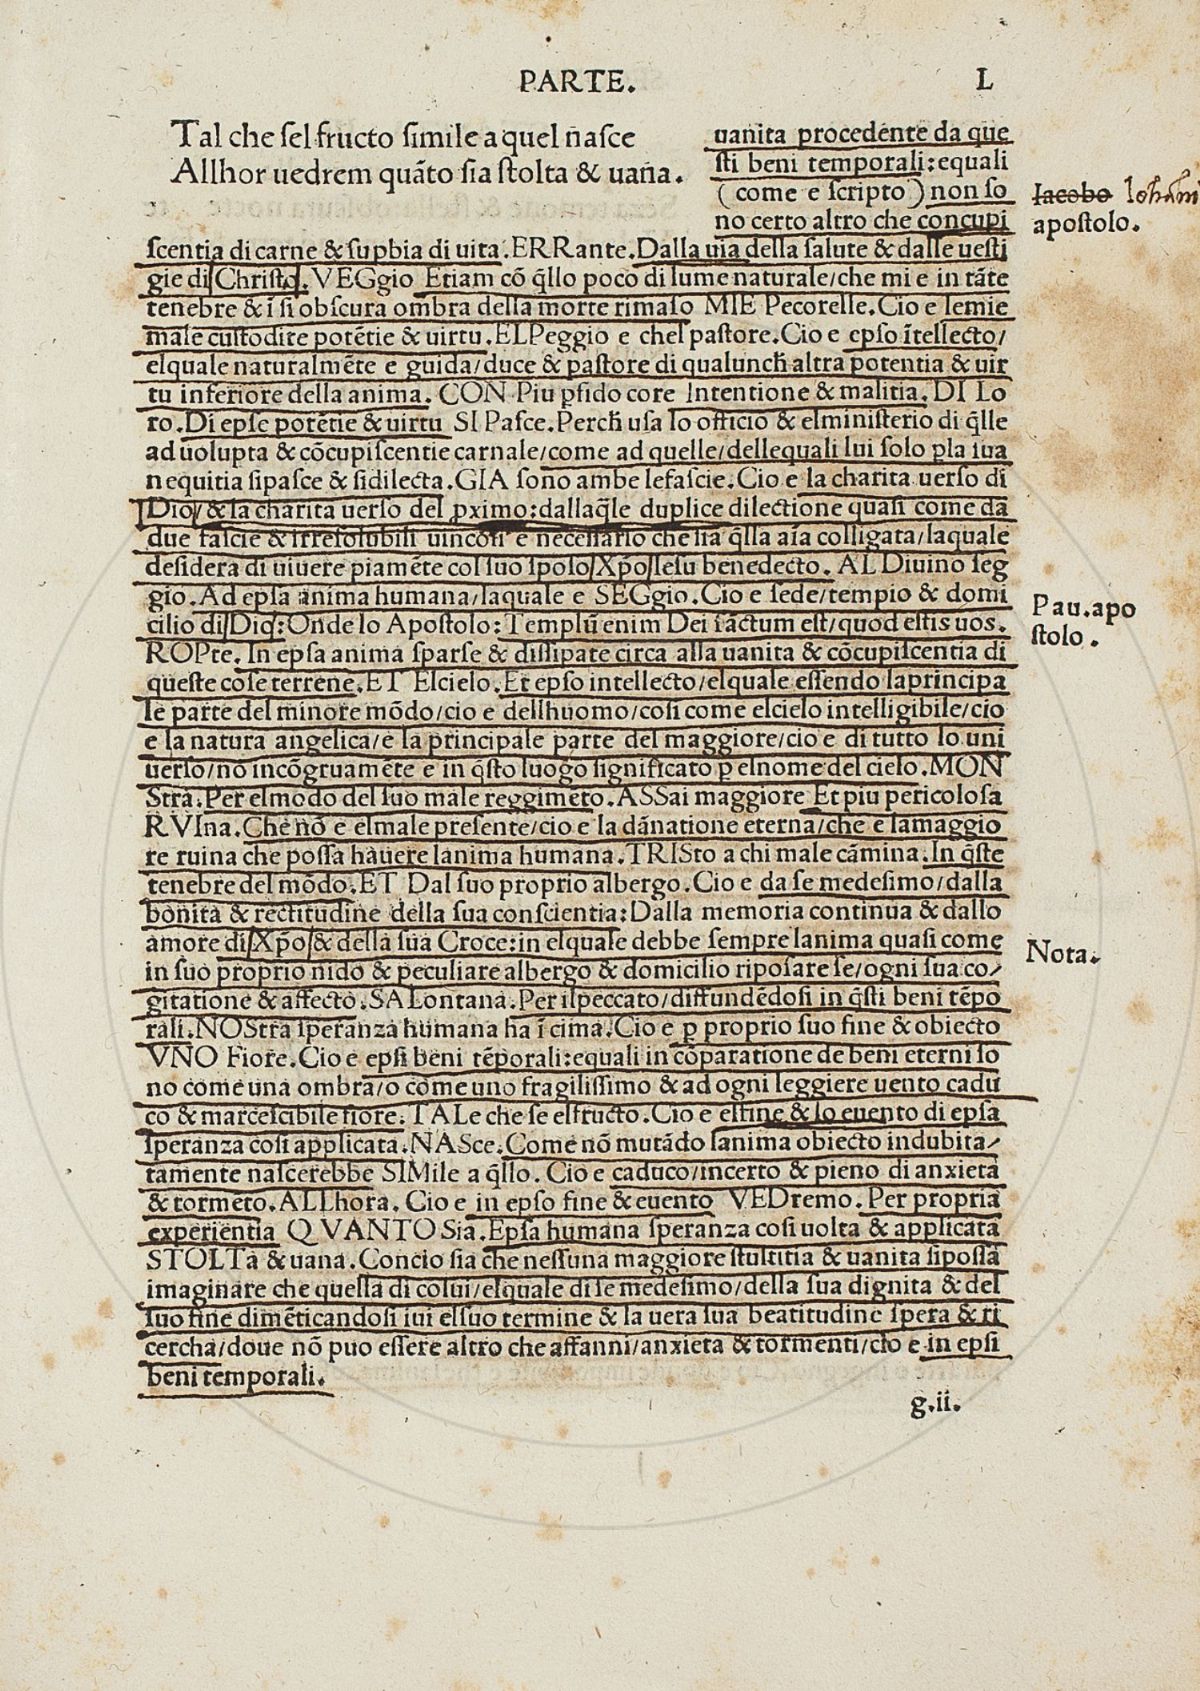 PARTE. L
Tal che sel fructo simile a quel nasce
Allhor uedrem quāto sia stolta & uana.
uanita procedente da que
sti beni temporali:equali
(come e scripto) non so
no certo altro che concupi
Iacobo Iohāni
apostolo.
scentia di carne & supbia di uita.ERRante.Dalla uia della salute & dalle uesti
gie di Christo.VEGgio Etiam cō q̄llo poco di lume naturale/che mi e in tāte
tenebre & ī si obscura ombra della morte rimaso MIE Pecorelle.Cio e lemie
male custodite potētie & uirtu.ELPeggio e chel pastore.Cio e epso ītellecto/
elquale naturalmēte e guida/duce & pastore di qualunch altra potentia & uir
tu inferiore della anima. CON Piu ꝑfido core Intentione & malitia. DI Lo
ro.Di epse potētie & uirtu SI Pasce.Perch usa lo officio & elministerio di q̄lle
ad uolupta & cōcupiscentie carnale/come ad quelle/dellequali lui solo ꝑla sua
nequitia sipasce & sidilecta.GIA sono ambe lefascie.Cio e la charita uerso di
Dio/& la charita uerso del ꝓximo:dallaq̄le duplice dilectione quasi come da
due fascie & irresolubili uincoli e necessario che sia q̄lla aīa colligata/laquale
desidera di uiuere piamēte col suo sposo Xp̄o Iesu benedecto. AL Diuino seg
gio.Ad epsa anima humana/laquale e SEGgio.Cio e sede/tempio & domi
cilio di Dio:Onde lo Apostolo:Templū enim Dei sāctum est/quod estis uos.
Pau.apo
stolo.
ROPte.In epsa anima sparse & dissipate circa alla uanita & cōcupiscentia di
queste cose terrene.ET Elcielo.Et epso intellecto/elquale essendo laprincipa
le parte del minore mōdo/cio e dellhuomo/cosi come elcielo intelligibile/cio
e la natura angelica/e la principale parte del maggiore/cio e di tutto lo uni
uerso/nō incōgruamēte e in q̄sto luogo significato ꝑ elnome del cielo.MON
Stra.Per elmodo del suo male reggimēto.ASSai maggiore Et piu pericolosa
RVIna.Che nō e elmale presente/cio e la dānatione eterna/che e lamaggio
re ruina che possa hauere lanima humana.TRISto a chi male cāmina.In q̄ste
tenebre del mōdo.ET Dal suo proprio albergo.Cio e da se medesimo/dalla
bonita & rectitudine della sua conscientia:Dalla memoria continua & dallo
amore di Xp̄o & della sua Croce:in elquale debbe sempre lanima quasi come
Nota.
in suo proprio nido & peculiare albergo & domicilio riposare se/ogni sua co/
gitatione & affecto.SALontana.Per ilpeccato/diffundēdosi in q̄sti beni tēpo
rali.NOStra speranza humana ha ī cima.Cio e ꝑ proprio suo fine & obiecto
VNO Fiore.Cio e epsi beni tēporali:equali in cōparatione de beni eterni so
no come una ombra/o come uno fragilissimo & ad ogni leggiere uento cadu
co & marcescibile fiore.TALe che se elfructo.Cio e elfine & lo euento di epsa
speranza cosi applicata.NASce.Come nō mutādo lanima obiecto indubita/
tamente nascerebbe SIMile a q̄llo. Cio e caduco/incerto & pieno di anxieta
& tormēto.ALLhora. Cio e in epso fine & euento VEDremo.Per propria
experientia QVANTO Sia.Epsa humana speranza cosi uolta & applicata
STOLTa & uana.Concio sia che nessuna maggiore stultitia & uanita sipossa
imaginare che quella di colui/elquale di se medesimo/della sua dignita & del
suo fine dimēticandosi iui elsuo termine & la uera sua beatitudine spera & ri
cercha/doue nō puo essere altro che affanni/anxieta & tormenti/cio e in epsi
beni temporali.
g.ii.